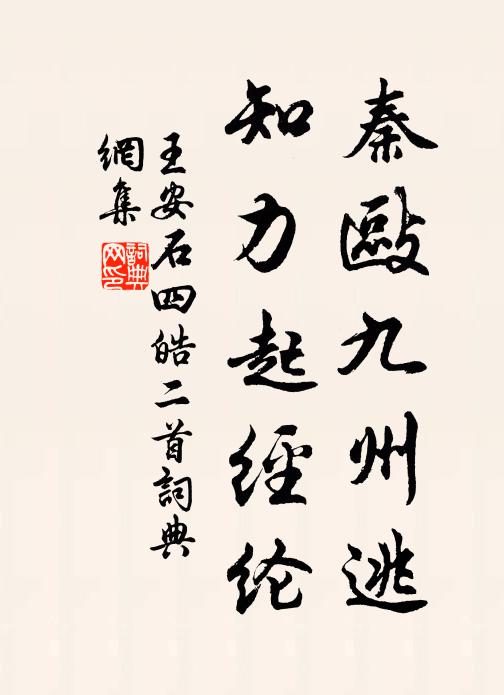 秦敺九州逃
知力起經纶
王安石四皓二首詞典
網集
詞典
网印